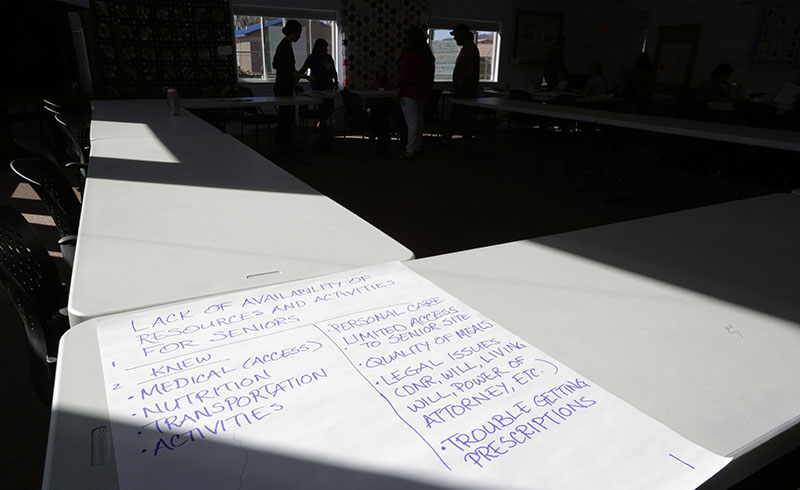 LACK OF AVAILABILITY OF
RESOURCES AND ACTIVITIES
FOR SENIORS
1
KNEW
2
• MEDICAL (ACCESS)
• NUTRITION
• TRANSPORTATION
• ACTIVITIES
PERSONAL CARE
LIMITED ACCESS
TO SENIOR SITE
• QUALITY OF MEALS
• LEGAL ISSUES
(DNR, WILL, LIVING
WILL, POWER OF
ATTORNEY, ETC.)
• TROUBLE GETTING
PRESCRIPTIONS